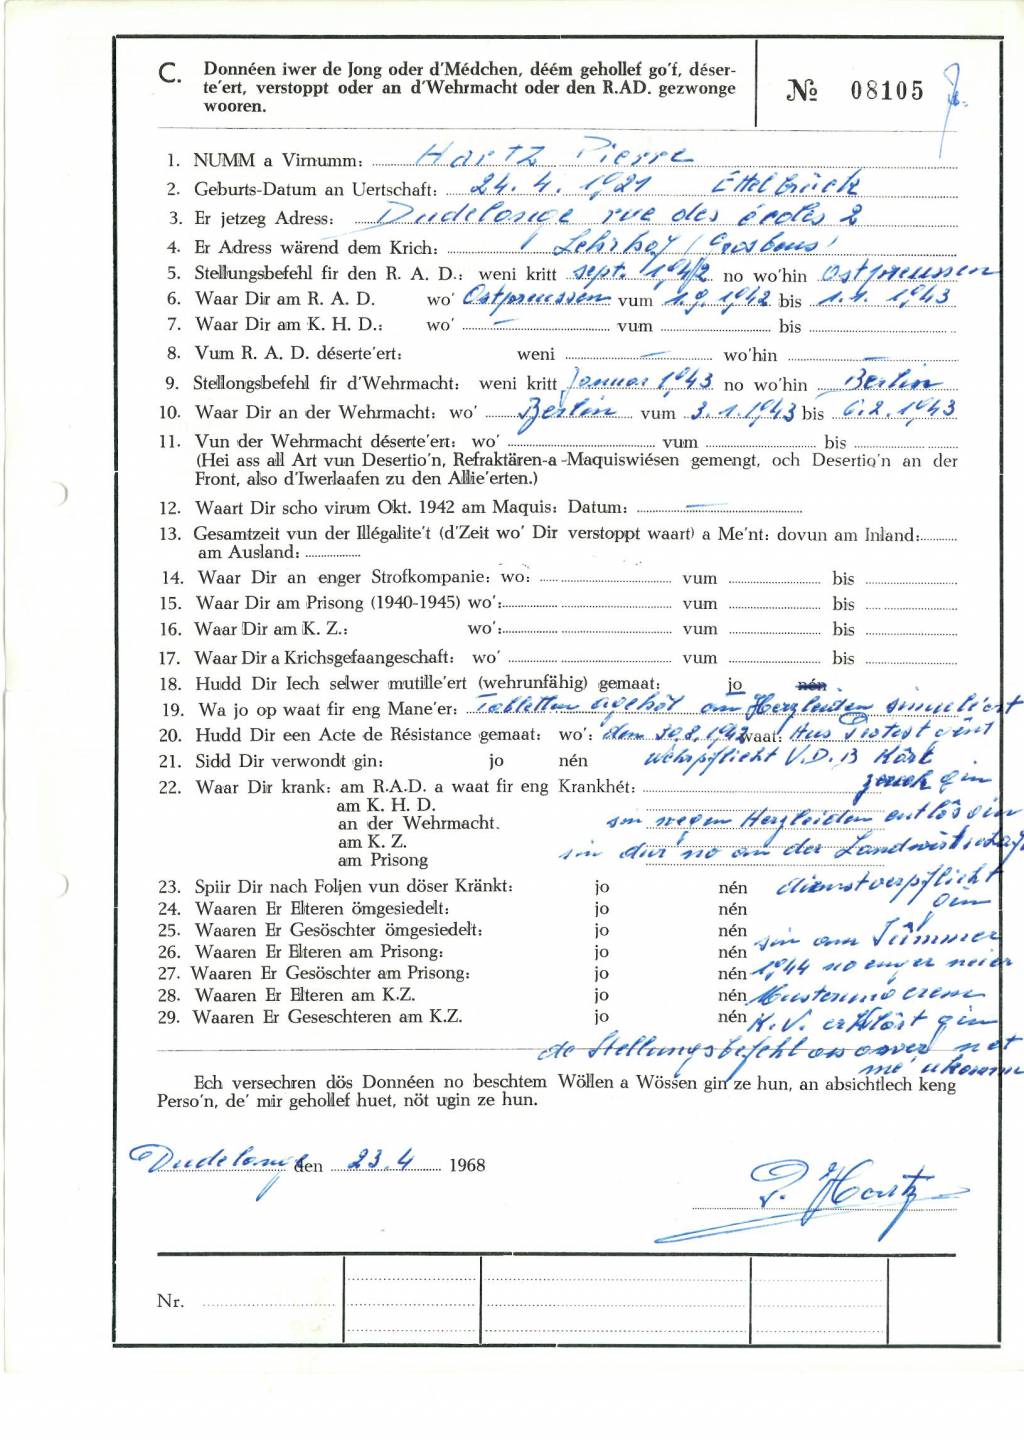 C. Donnéen iwer de Jong oder d'Médchen, déém gehollef go'f, déser-
te'ert, verstoppt oder an d'Wehrmacht oder den R.AD. gezwonge
wooren.
№ 08105
1. NUMM a Virnumm: Hartz Pierre
2. Geburts-Datum an Uertschaft: 24. 4. 1921 Ettelbrück
3. Er jetzeg Adress: Dudelange rue des écoles 2
4. Er Adress wärend dem Krich: Lehrhof
5. Stellungsbefehl fir den R. A. D.: weni kritt sept. 1942 no wo'hin Ostpreussen
6. Waar Dir am R. A. D. wo' Ostpreussen vum 1.9. 1942 bis 1.1. 1943
7. Waar Dir am K. H. D.: wo' — vum bis
8. Vum R. A. D. déserte'ert: weni — wo'hin —
9. Stellongsbefehl fir d'Wehrmacht: weni kritt Januar 1943 no wo'hin Berlin
10. Waar Dir an der Wehrmacht: wo' Berlin vum 3.1.1943 bis 6.2.1943
11. Vun der Wehrmacht déserte'ert: wo' vum bis
(Hei ass all Art vun Desertio'n, Refraktären-a-Maquiswiésen gemengt, och Desertio'n an der
Front, also d'Iwerlaafen zu den Allie'erten.)
12. Waart Dir scho virum Okt. 1942 am Maquis: Datum: —
13. Gesamtzeit vun der Illégalite't (d'Zeit wo' Dir verstoppt waart) a Me'nt: dovun am Inland:
am Ausland:
14. Waar Dir an enger Strofkompanie: wo: vum bis
15. Waar Dir am Prisong (1940-1945) wo': vum bis
16. Waar Dir am K. Z.: wo': vum bis
17. Waar Dir a Krichsgefaangeschaft: wo' vum bis
18. Hudd Dir Iech selwer mutille'ert (wehrunfähig) gemaat: jo nén
19. Wa jo op waat fir eng Mane'er: Tabletten ageholt an Herzleiden simuliert
20. Hudd Dir een Acte de Résistance gemaat: wo': dem 30.8.1942 waat: Aus Protest
21. Sidd Dir verwondt gin: jo nén Wehrpflicht V.D.B Kart
22. Waar Dir krank: am R.A.D. a waat fir eng Krankhét: zeréck gin
am K. H. D.
an der Wehrmacht. sin wegen Herzleiden entlôs gin
am K. Z.
am Prisong sin dur no an der
23. Spiir Dir nach Foljen vun döser Kränkt: jo nén dienstverpflicht
24. Waaren Er Elteren ömgesiedelt: jo nén gin
25. Waaren Er Gesöschter ömgesiedelt: jo nén sin am Summer
26. Waaren Er Elteren am Prisong: jo nén
27. Waaren Er Gesöschter am Prisong: jo nén 1944 no enger neier
28. Waaren Er Elteren am K.Z. jo nén
29. Waaren Er Geseschteren am K.Z. jo nén K.V. erklärt gin
de Stellungsbefehl as awer net
me' ukomm
Ech versechren dös Donnéen no beschtem Wöllen a Wössen gin ze hun, an absichtlech keng
Perso'n, de' mir gehollef huet, nöt ugin ze hun.
Dudelange den 23.4 1968
P. Hartz
Nr.